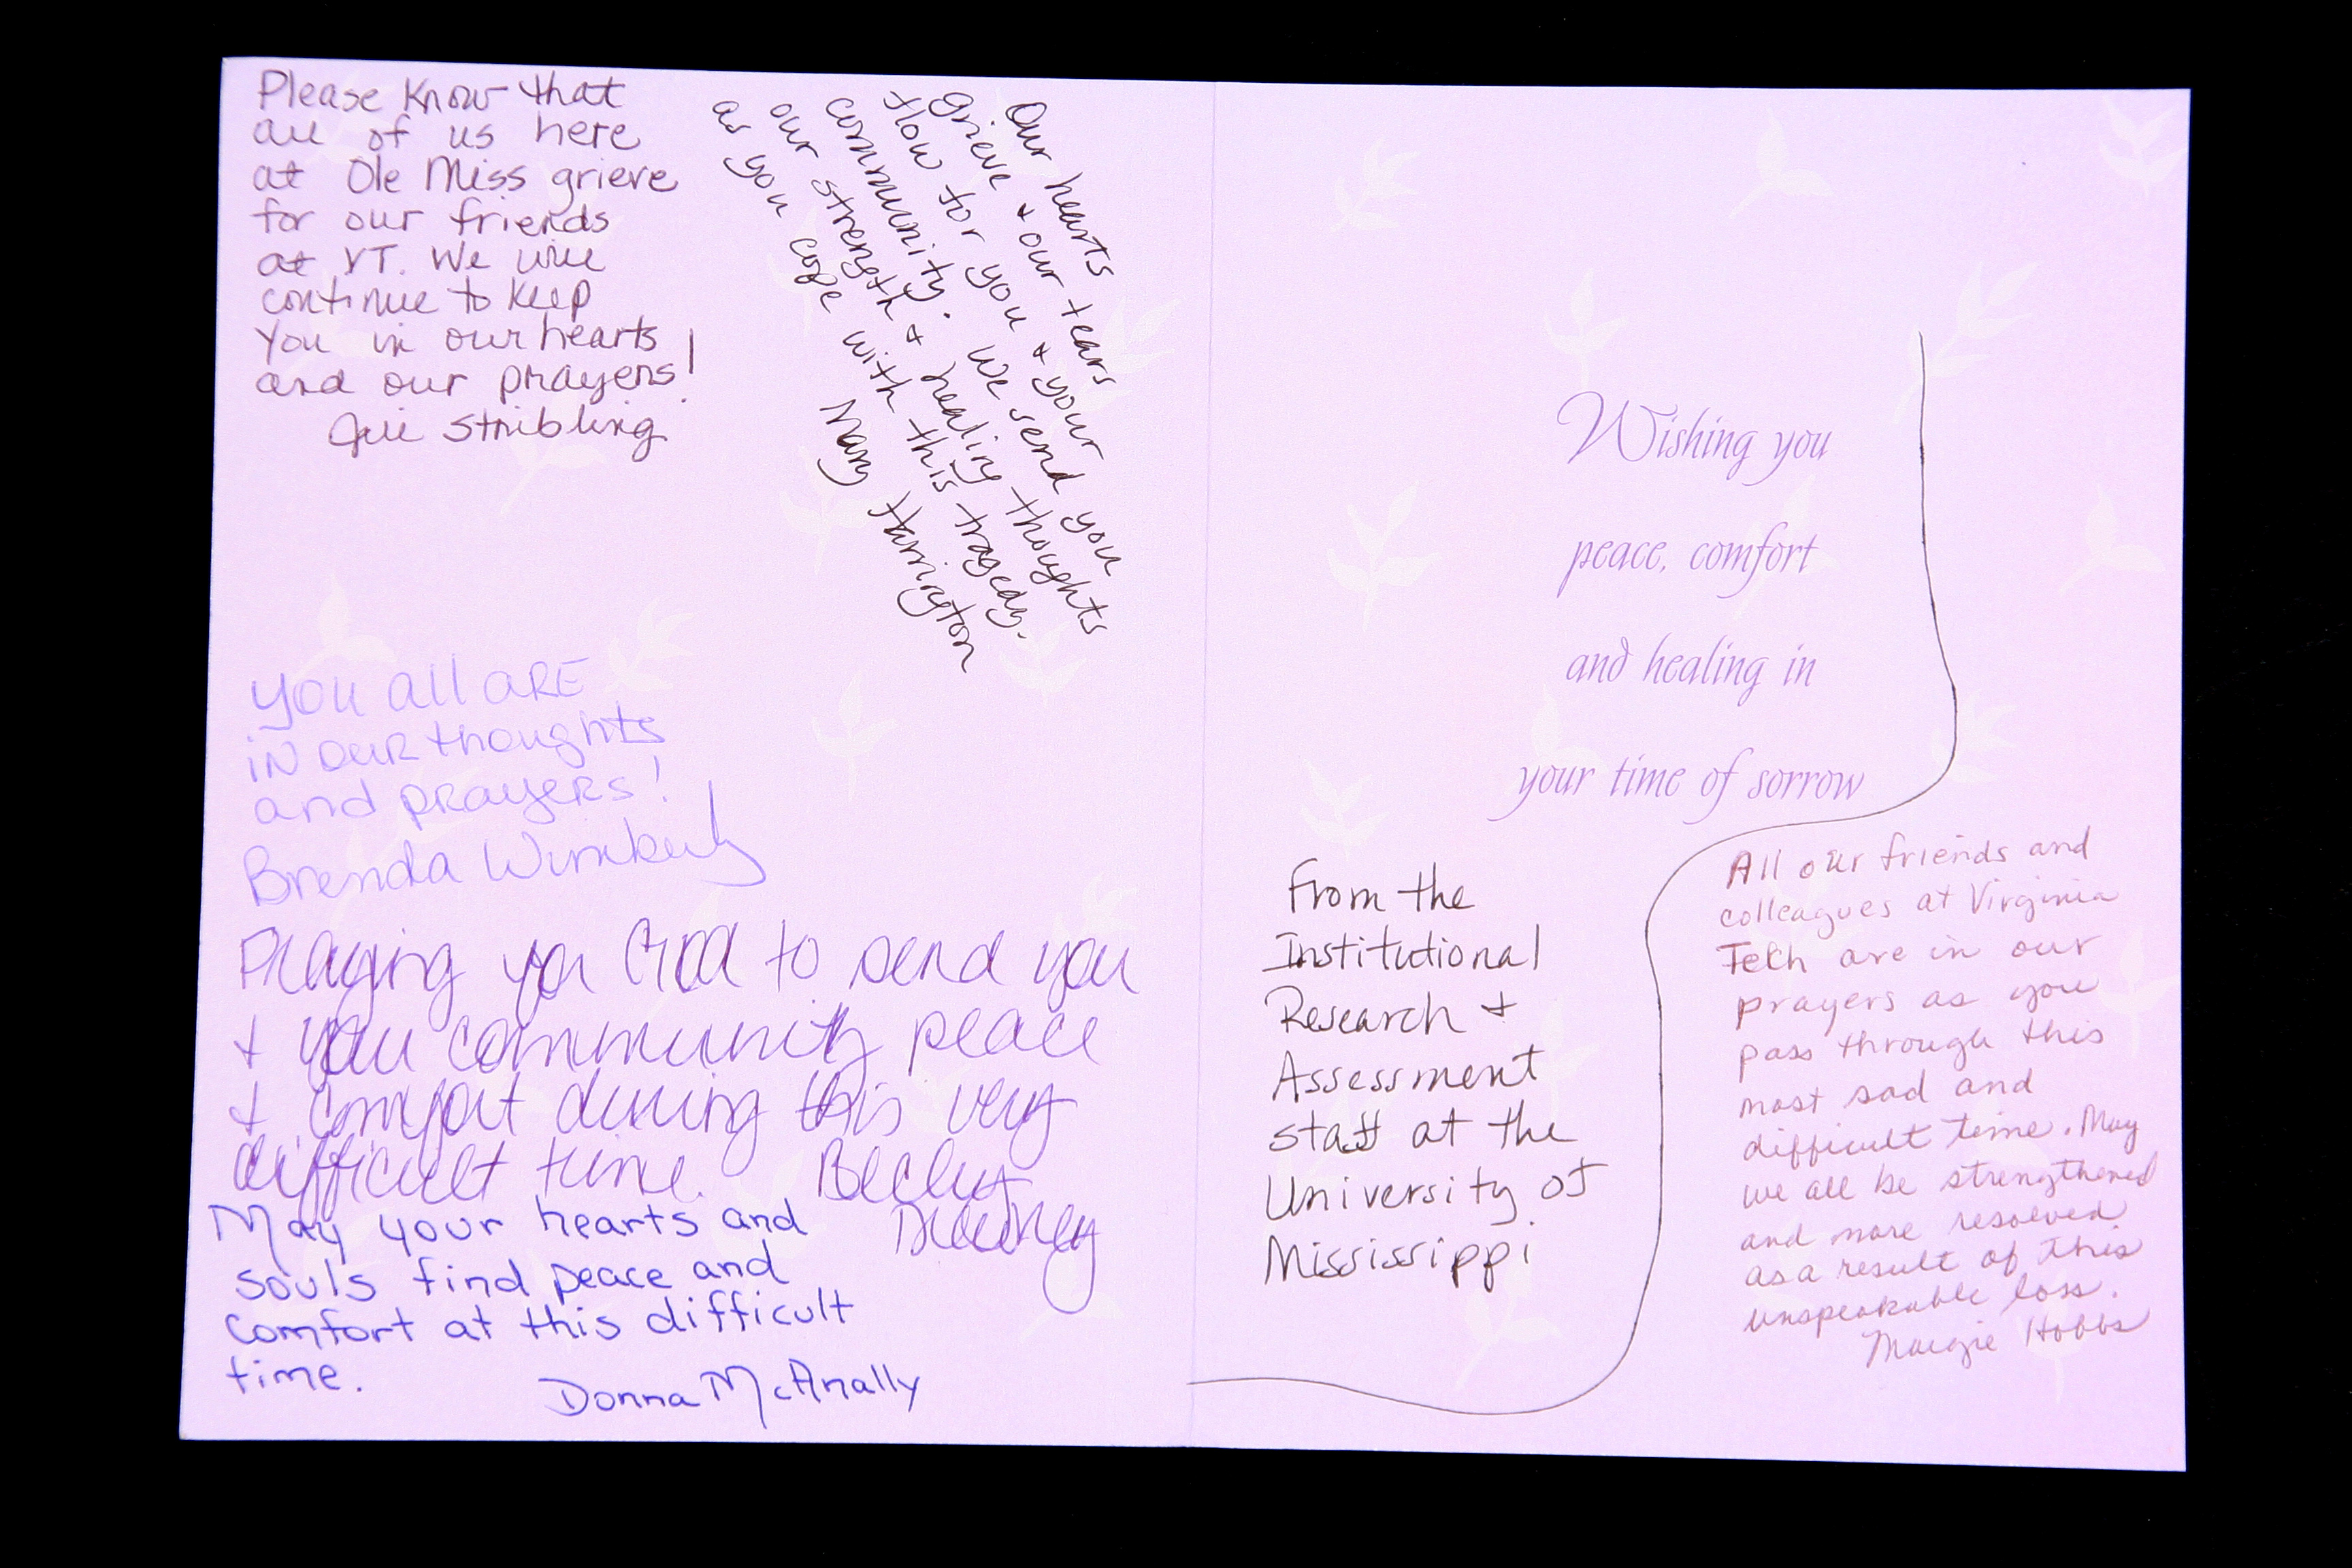 Please know that
all of us here
at Ole Miss grieve
for our friends
at VT. We will
continue to keep
you in our hearts
and our prayers!
Stribling
Our hearts
grieve + our tears
flow for you + your
community. We send you
our strength + healing thoughts
as you cope with this tragedy.
Mary Harrington
you all ARE
iN OUR thoughts
and pRayeRs!
Brenda Wimberly
Praying to send you
+ community peace
+ comfort during this very
difficult time. Becky
May your hearts and
souls find peace and
comfort at this difficult
time.
Donna McAnally
Wishing you
peace, comfort
and healing in
your time of sorrow
From the
Institutional
Research +
Assessment
staff at the
University of
Mississippi
All our friends and
colleagues at Virginia
Tech are in our
prayers as you
pass through this
most sad and
difficult time. May
we all be strengthened
and more resolved
as a result of this
unspeakable loss.
Margie Hobbs